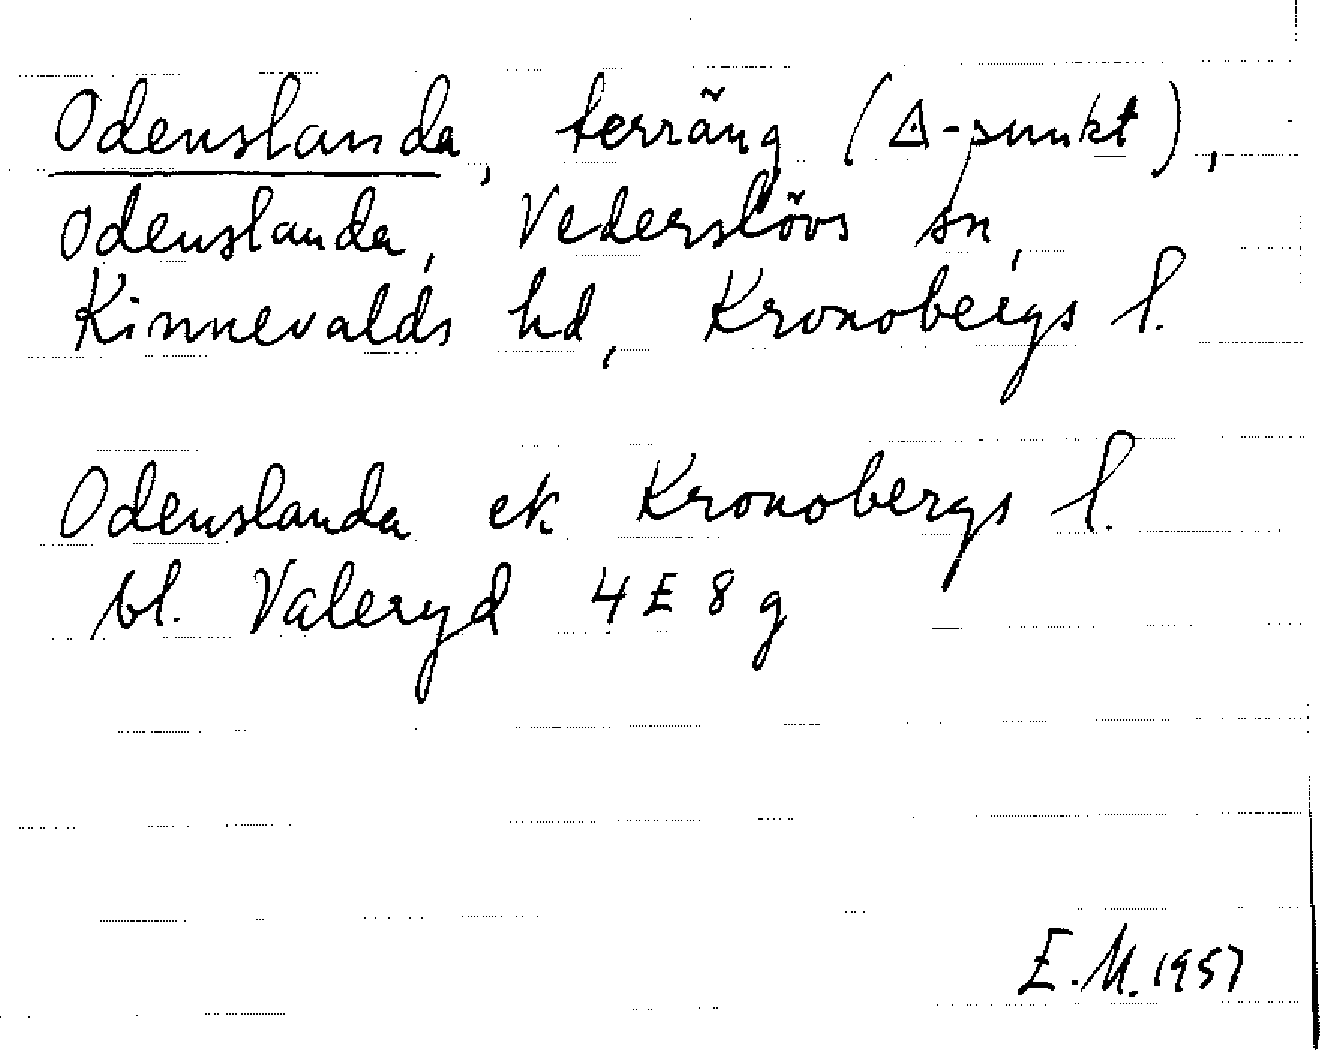 Odenslanda, terräng (△-punkt),
Odenslanda, Vederslövs sn,
Kinnevalds hd, Kronobergs l.
Odenslanda ek Kronobergs l.
bl. Valeryd 4E8g
E.M. 1957